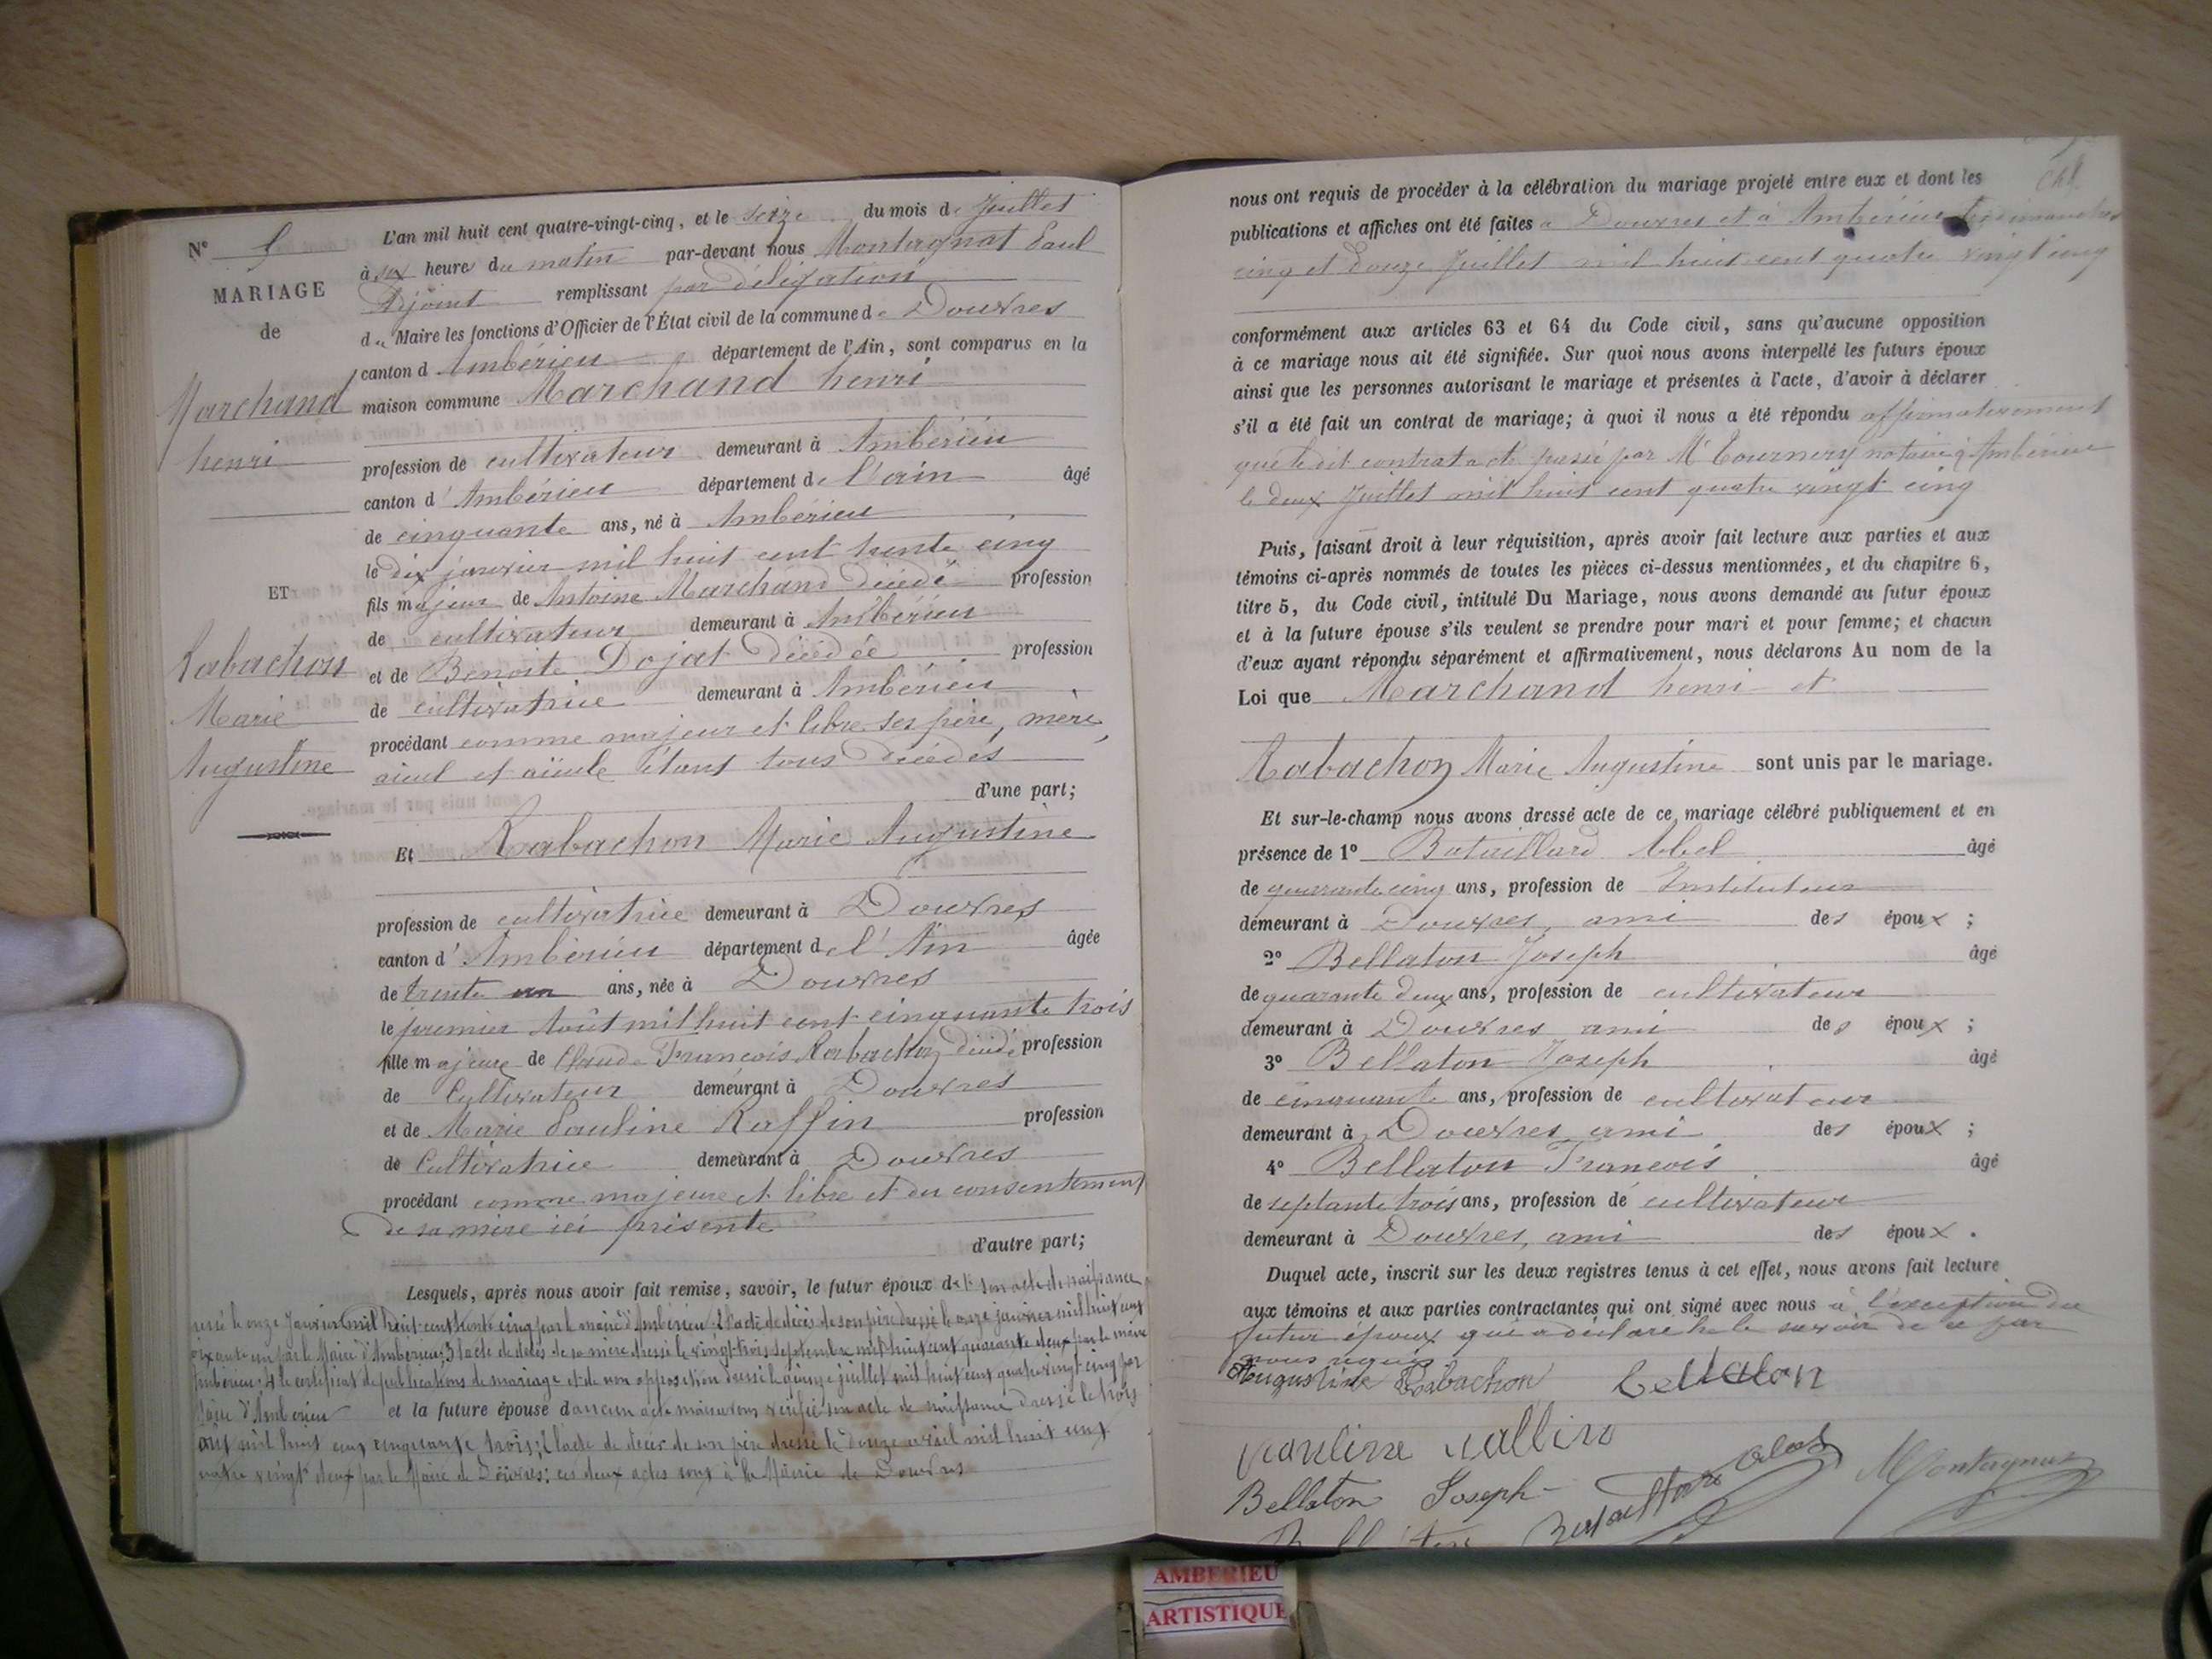 N°
MARIAGE
de
Marchand
henri
ET
Rabachon
Marie
Augustine
L'an mil huit cent quatre-vingt-cinq, et le seize du mois de Juillet
à six heure du matin par-devant nous Montagnat Paul
Adjoint remplissant par délégation
du Maire les fonctions d'Officier de l'État civil de la commune de Douvres
canton d'Ambérieu département de l'Ain, sont comparus en la
maison commune Marchand henri
profession de cultivateur demeurant à Ambérieu
canton d'Ambérieu département de l'ain âgé
de cinquante ans, né à Ambérieu
le dix janvier mil huit cent trente cinq
fils majeur de Antoine Marchand décédé profession
de cultivateur demeurant à Ambérieu
et de Benoite Dojat décédée profession
de cultivatrice demeurant à Ambérieu
procédant comme majeur et libre ses père, mère,
aieul et aïeule étant tous décédés
d'une part;
Et Rabachon Marie Augustine
profession de cultivatrice demeurant à Douvres
canton d'Ambérieu département de l'Ain âgée
de trente un ans, née à Douvres
le premier Août mil huit cent cinquante trois
fille majeure de Claude François Rabachon décédé profession
de Cultivateur demeurant à Douvres
et de Marie Pauline Raffin profession
de Cultivatrice demeurant à Douvres
procédant comme majeure et libre et du consentement
de sa mère ici présente
d'autre part;
Lesquels, après nous avoir fait remise, savoir, le futur époux de 1° son acte de naissance
le onze Janvier mil huit cent trente cinq par le maire d'Ambérieu; 2 l'acte de décès de son père dressé le onze janvier mil huit cent
soixante un par le Maire d'Ambérieu; 3 l'acte de décès de sa mère dressé le vingt-trois septembre mil huit cent quarante deux par le maire
Ambérieu; 4 le certificat de publications de mariage et de non opposition dressé le quinze juillet mil huit cent quatre vingt cinq par
Maire d'Ambérieu et la future épouse d'aucun acte mais avons vérifié son acte de naissance dressé le trois
août mil huit cent cinquante trois; 2 l'acte de décès de son père dressé le douze avril mil huit cent
quatre vingt deux par le Maire de Douvres; ces deux actes sont à la Mairie de Douvres
nous ont requis de procéder à la célébration du mariage projeté entre eux et dont les
publications et affiches ont été faites à Douvres et à Ambérieu les dimanches
cinq et douze Juillet mil huit cent quatre vingt cinq
conformément aux articles 63 et 64 du Code civil, sans qu'aucune opposition
à ce mariage nous ait été signifiée. Sur quoi nous avons interpellé les futurs époux
ainsi que les personnes autorisant le mariage et présentes à l'acte, d'avoir à déclarer
s'il a été fait un contrat de mariage; à quoi il nous a été répondu affirmativement
que le dit contrat a été passé par Mr Tournery notaire à Ambérieu
le deux Juillet mil huit cent quatre vingt cinq
Puis, faisant droit à leur réquisition, après avoir fait lecture aux parties et aux
témoins ci-après nommés de toutes les pièces ci-dessus mentionnées, et du chapitre 6,
titre 5, du Code civil, intitulé Du Mariage, nous avons demandé au futur époux
et à la future épouse s'ils veulent se prendre pour mari et pour femme; et chacun
d'eux ayant répondu séparément et affirmativement, nous déclarons Au nom de la
Loi que Marchand henri et
Rabachon Marie Augustine sont unis par le mariage.
Et sur-le-champ nous avons dressé acte de ce mariage célébré publiquement et en
présence de 1° Bataillard Abel âgé
de quarante cinq ans, profession de Instituteur
demeurant à Douvres, ami des époux ;
2° Bellaton Joseph âgé
de quarante deux ans, profession de cultivateur
demeurant à Douvres ami des époux ;
3° Bellaton Joseph âgé
de cinquante ans, profession de cultivateur
demeurant à Douvres ami des époux ;
4° Bellaton François âgé
de septante trois ans, profession de cultivateur
demeurant à Douvres, ami des époux .
Duquel acte, inscrit sur les deux registres tenus à cet effet, nous avons fait lecture
aux témoins et aux parties contractantes qui ont signé avec nous à l'exception du
futur époux qui a déclaré ne le savoir de ce par
nous requis
Augustine Rabachon Bellaton
Pauline
Bellaton Joseph Montagnat
AMBERIEU
ARTISTIQUE